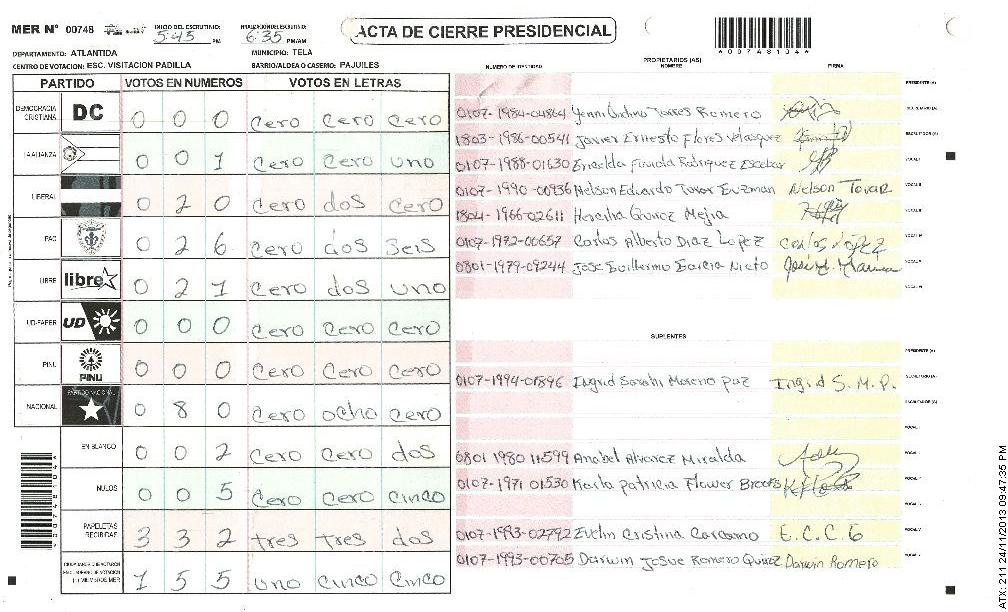 MER Nº 00748 INICIO DEL ESCRUTINIO: 5:45 PM FINALIZACION DEL ESCRUTINIO: 6:35 PM/AM
ACTA DE CIERRE PRESIDENCIAL
DEPARTAMENTO: ATLANTIDA MUNICIPIO: TELA
CENTRO DE VOTACION: ESC. VISITACION PADILLA BARRIO/ALDEA O CASERIO: PAJUILES
PARTIDO VOTOS EN NUMEROS VOTOS EN LETRAS
DEMOCRACIA CRISTIANA DC 0 0 0 cero cero cero
LA ALIANZA 0 0 1 cero cero uno
LIBERAL 0 2 0 cero dos cero
PAC 0 2 6 cero dos seis
LIBRE libre 0 2 1 cero dos uno
UD-FAPER UD 0 0 0 cero cero cero
PINU PINU 0 0 0 cero cero cero
NACIONAL PARTIDO NACIONAL 0 8 0 cero ocho cero
EN BLANCO 0 0 2 cero cero dos
NULOS 0 0 5 cero cero cinco
PAPELETAS RECIBIDAS 3 3 2 tres tres dos
1 5 5 uno cinco cinco
PROPIETARIOS (AS)
NUMERO DE IDENTIDAD NOMBRE FIRMA
PRESIDENTE (A)
0107-1984-04864 Torres Romero SECRETARIO (A)
1803-1986-00541 Javier Ernesto Flores Velasquez ESCRUTADOR (A)
0107-1988-01630 Rodriguez Escobar VOCAL I
0107-1990-00936 Nelson Eduardo Tovar Guzman Nelson Tovar VOCAL II
1804-1966-02611 Hercilia Quiroz Mejia
0107-1972-00657 Carlos Alberto Diaz Lopez Carlos López
0801-1979-09244 Jose Guillermo Garcia Nieto
SUPLENTES
PRESIDENTE (A)
0107-1994-01896 Ingrid Sarahi Moreno Paz Ingrid S. M. P. SECRETARIO (A)
ESCRUTADOR (A)
0801 1980 11599 Anabel Alvarez Miralda
0107-1971 01530 Karla Patricia Flower Brooks
0107-1993-02792 Evelin Cristina Carcamo E.C.C.G
0107-1993-00705 Darwin Josue Romero Quiroz Darwin Romero
A00748104A
ATX: 211 24/11/2013 09:47:35 PM